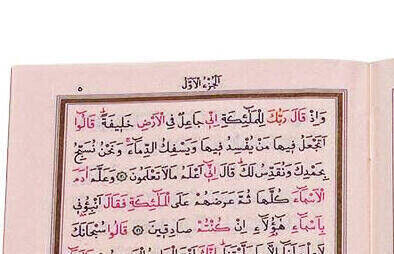 الجزء الأول
٥
وَإِذْ قَالَ رَبُّكَ لِلْمَلٰٓئِكَةِ اِنّ۪ي جَاعِلٌ فِي الْاَرْضِ خَل۪يفَةًۜ قَالُٓوا
اَتَجْعَلُ ف۪يهَا مَنْ يُفْسِدُ ف۪يهَا وَيَسْفِكُ الدِّمَٓاءَۚ وَنَحْنُ نُسَبِّحُ
بِحَمْدِكَ وَنُقَدِّسُ لَكَۜ قَالَ اِنّ۪ٓي اَعْلَمُ مَا لَا تَعْلَمُونَ ۞ وَعَلَّمَ اٰدَمَ
الْاَسْمَٓاءَ كُلَّهَا ثُمَّ عَرَضَهُمْ عَلَى الْمَلٰٓئِكَةِ فَقَالَ اَنْبِؤُ۫ن۪ي
بِاَسْمَٓاءِ هٰٓؤُ۬لَٓاءِ اِنْ كُنْتُمْ صَادِق۪ينَ ۞ قَالُوا سُبْحَانَكَ